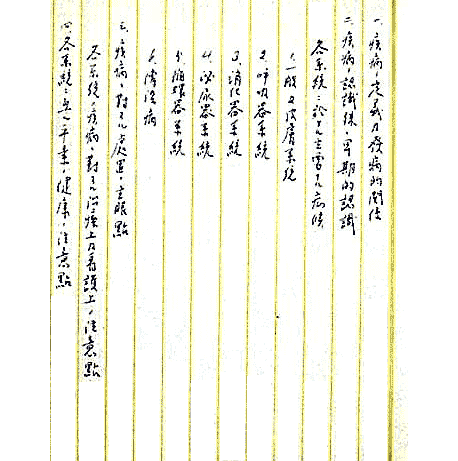 一、疾病ノ定義及發病的関係
二、疾病ノ認識殊ニ早期的認識
各系統ニ於ケル主要ナル症候
1、一般及皮膚系統
2、呼吸器系統
3、消化器系統
4、泌尿器系統
5、循環器系統
6、傳染病
三、疾病ニ對スル處置ノ主眼點
各系統ノ疾病ニ對スル治療上及看護上ノ注意點
四、各系統ニ平素ノ健康ノ注意點